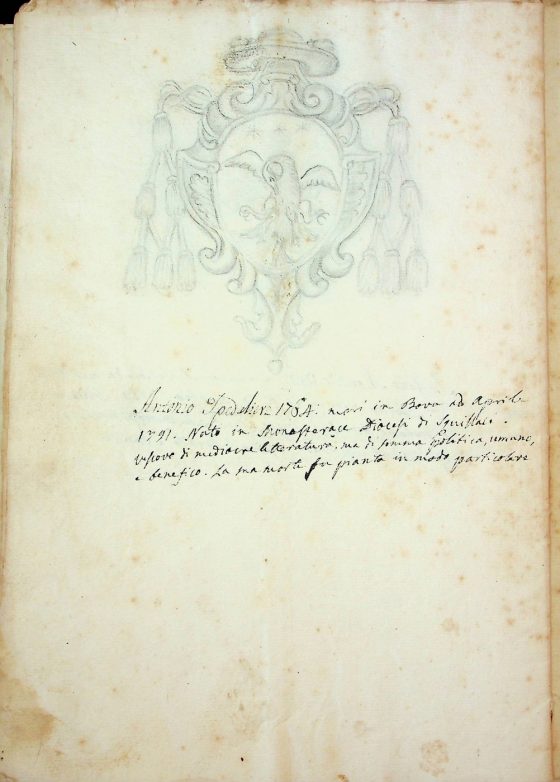 Antonio Spedalieri 1784. morì in Bova ad Aprile
1791. Nato in Monasterace Diocesi di Squillaci.
vescovo di mediocre letteratura, ma di somma politica, umano,
e benefico. La sua morte fu pianta in modo particolare